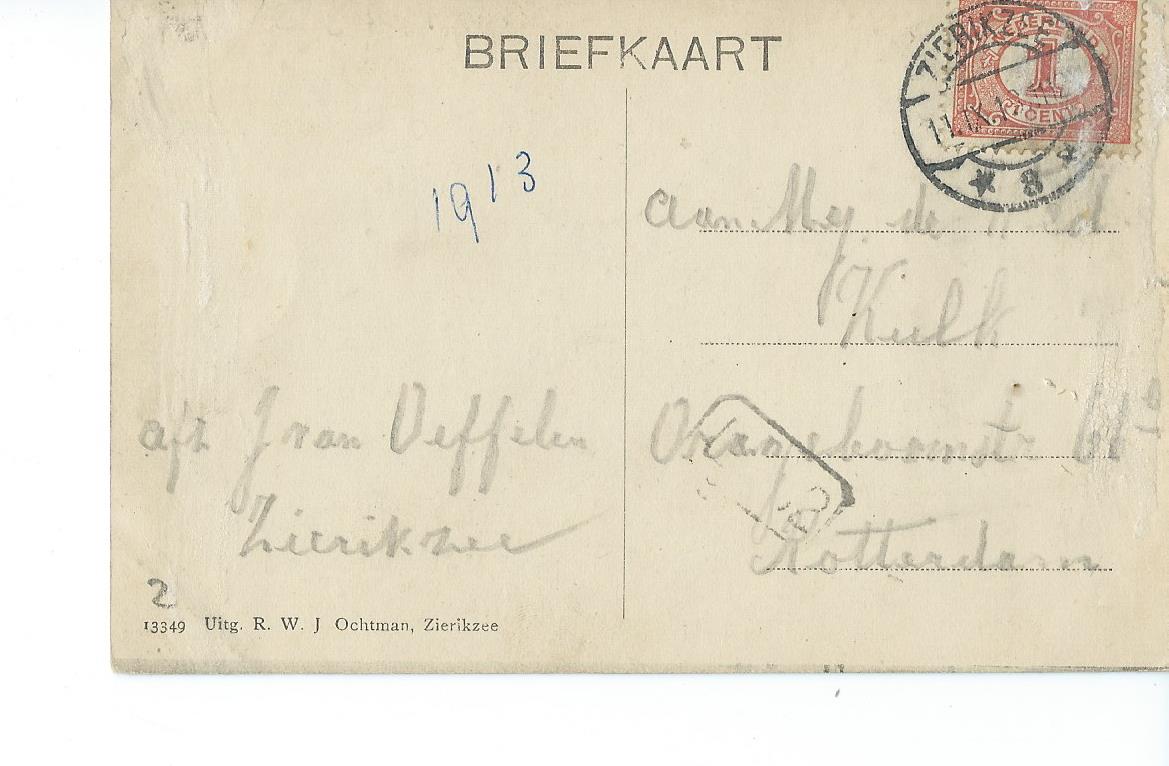 BRIEFKAART
ZIERIKZEE
NEDERLAND
1
CENT
11.IX.1
8
1913
aan Mej. de
Kulk
Oranjeboomstr
Rotterdam
afz J van Oeffelen
Zierikzee
2
13349 Uitg. R. W. J Ochtman, Zierikzee